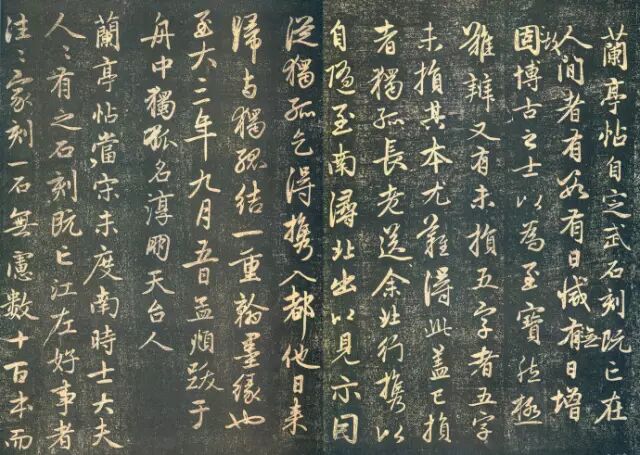 蘭亭帖自定武石刻既亡在
人間者有數有日減有無日增
固故博古之士以為至寶然極
難辨又有未損五字者五字
未損其本尤難得此蓋已損
者獨孤長老送余北行攜以
自隨至南潯北出以見示因
從獨孤乞得攜入都他日来
歸与獨孤結一重翰墨緣也
至大三年九月五日孟頫跋于
舟中獨孤名淳朋天台人
蘭亭帖當宋未度南時士大夫
人〻有之石刻既亡江左好事者
往〻家刻一石無慮數十百本而